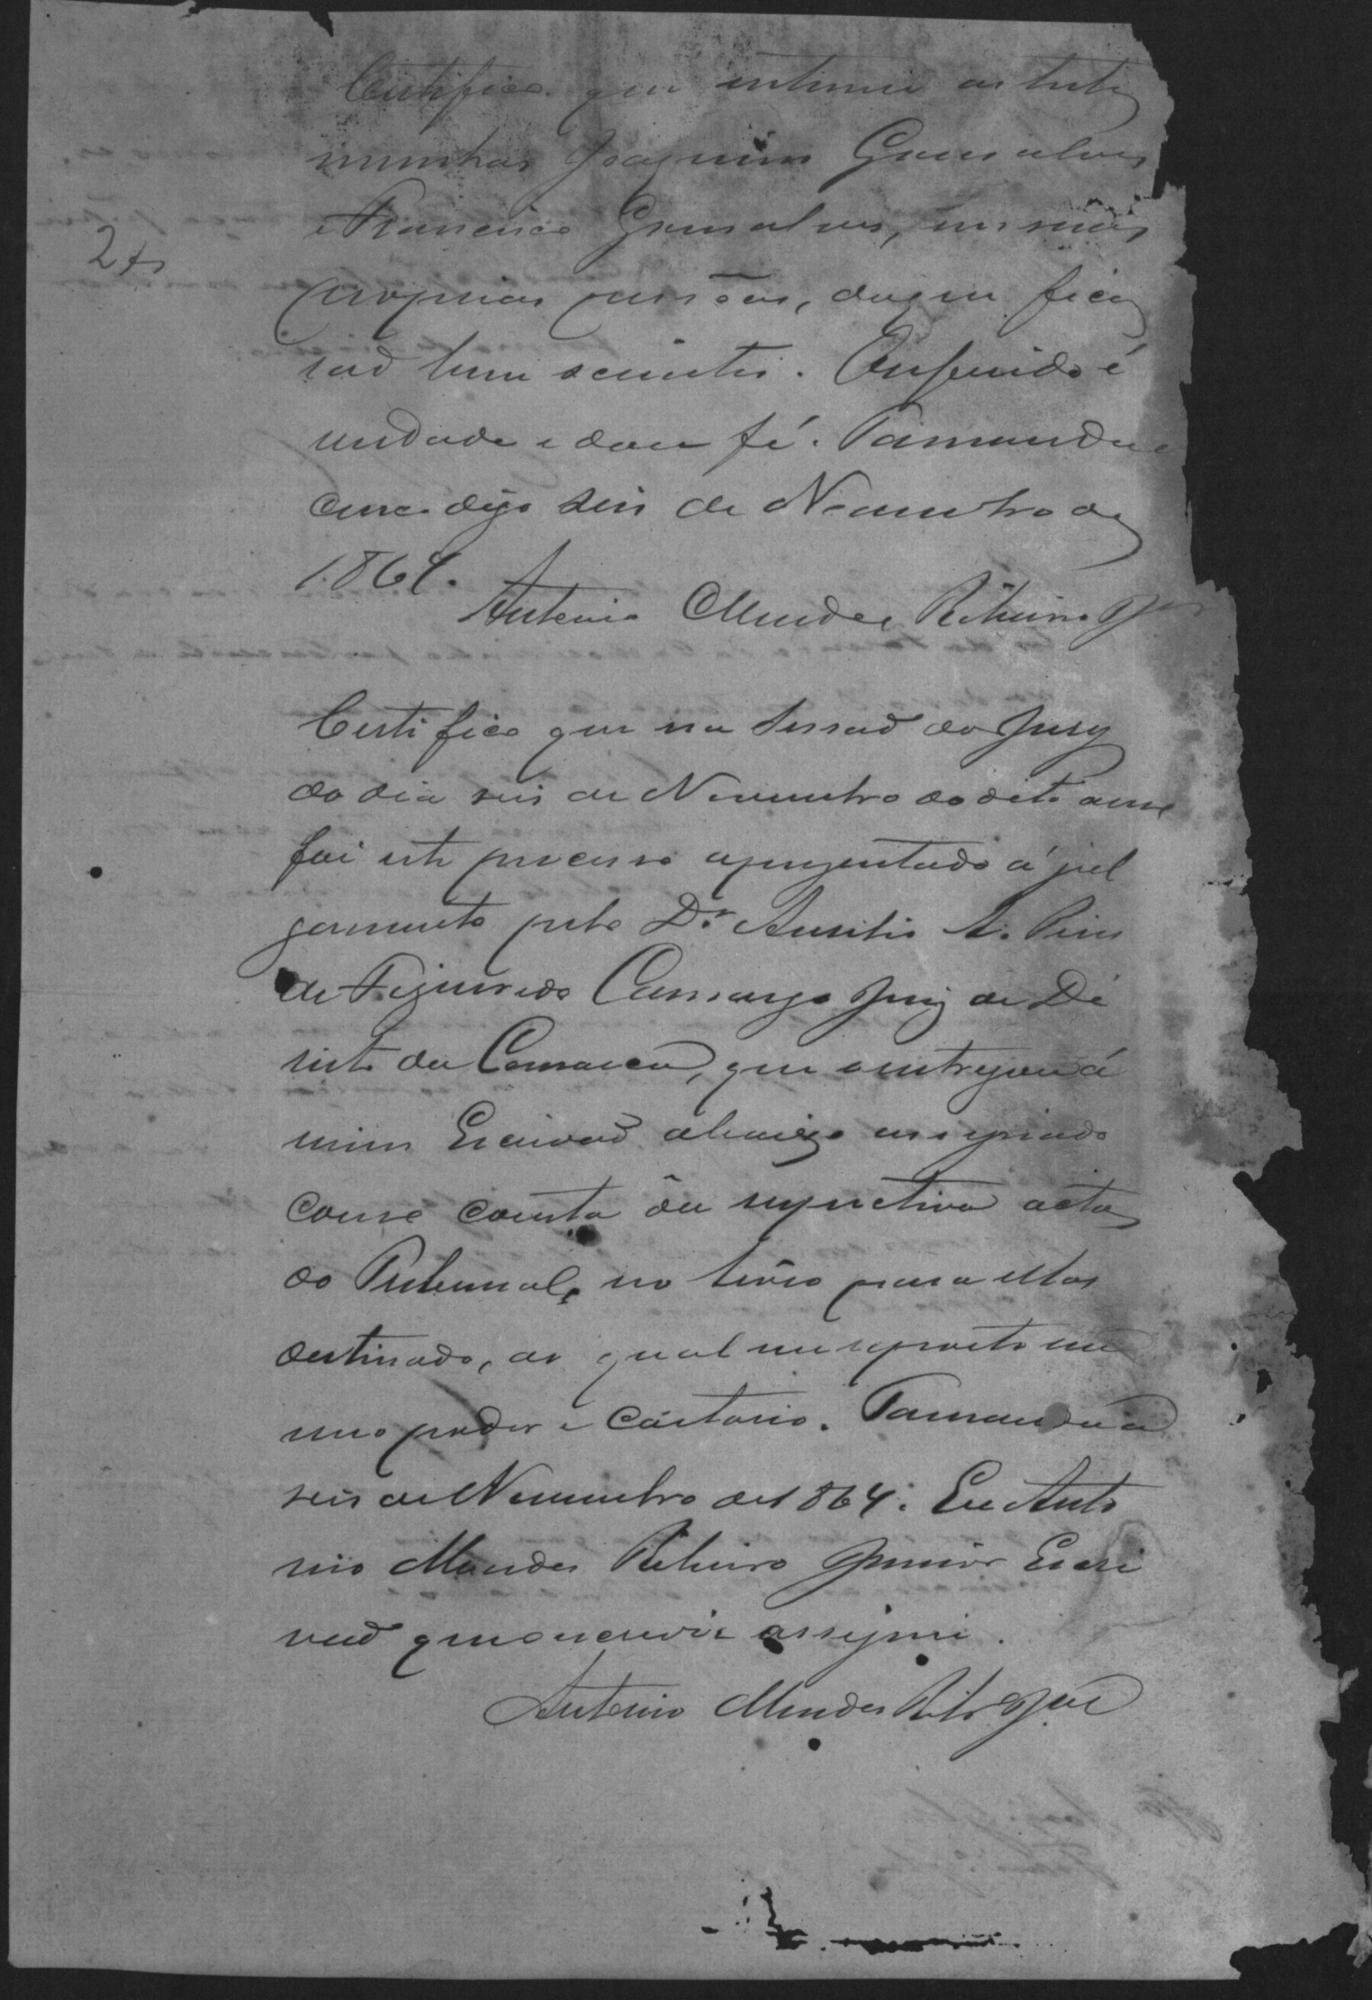 Certifico que intimei as teste
munhas Joaquim Gonsalves
e Francisco Gonsalves, em suas
proprias pessôas, do que fica
raõ bem scientes. O referido é
verdade e dou fé. Tamanduá
digo seis de Novembro de
1864.
Antonio Mendes Ribeiro Jor
Certifico que na sessaõ do Jury
do dia seis de Novembro do dito anno
foi este processo aprezentado á jul
gamento pelo Dr. Aurelio A. Pires
de Figueiredo Camargo Juiz de Di
reito da Comarca, que o entregou á
mim Escrivaõ abaixo assignado
como consta da respectiva acta
do Tribunal, no livro para ellas
destinado, ao qual me reporto em
meo poder e Cartorio. Tamanduá
seis de Novembro de 1864. Eu Anto
nio Mendes Ribeiro Junior Escri
vaõ que o escrevi e assignei.
Antonio Mendes Ribro Jor